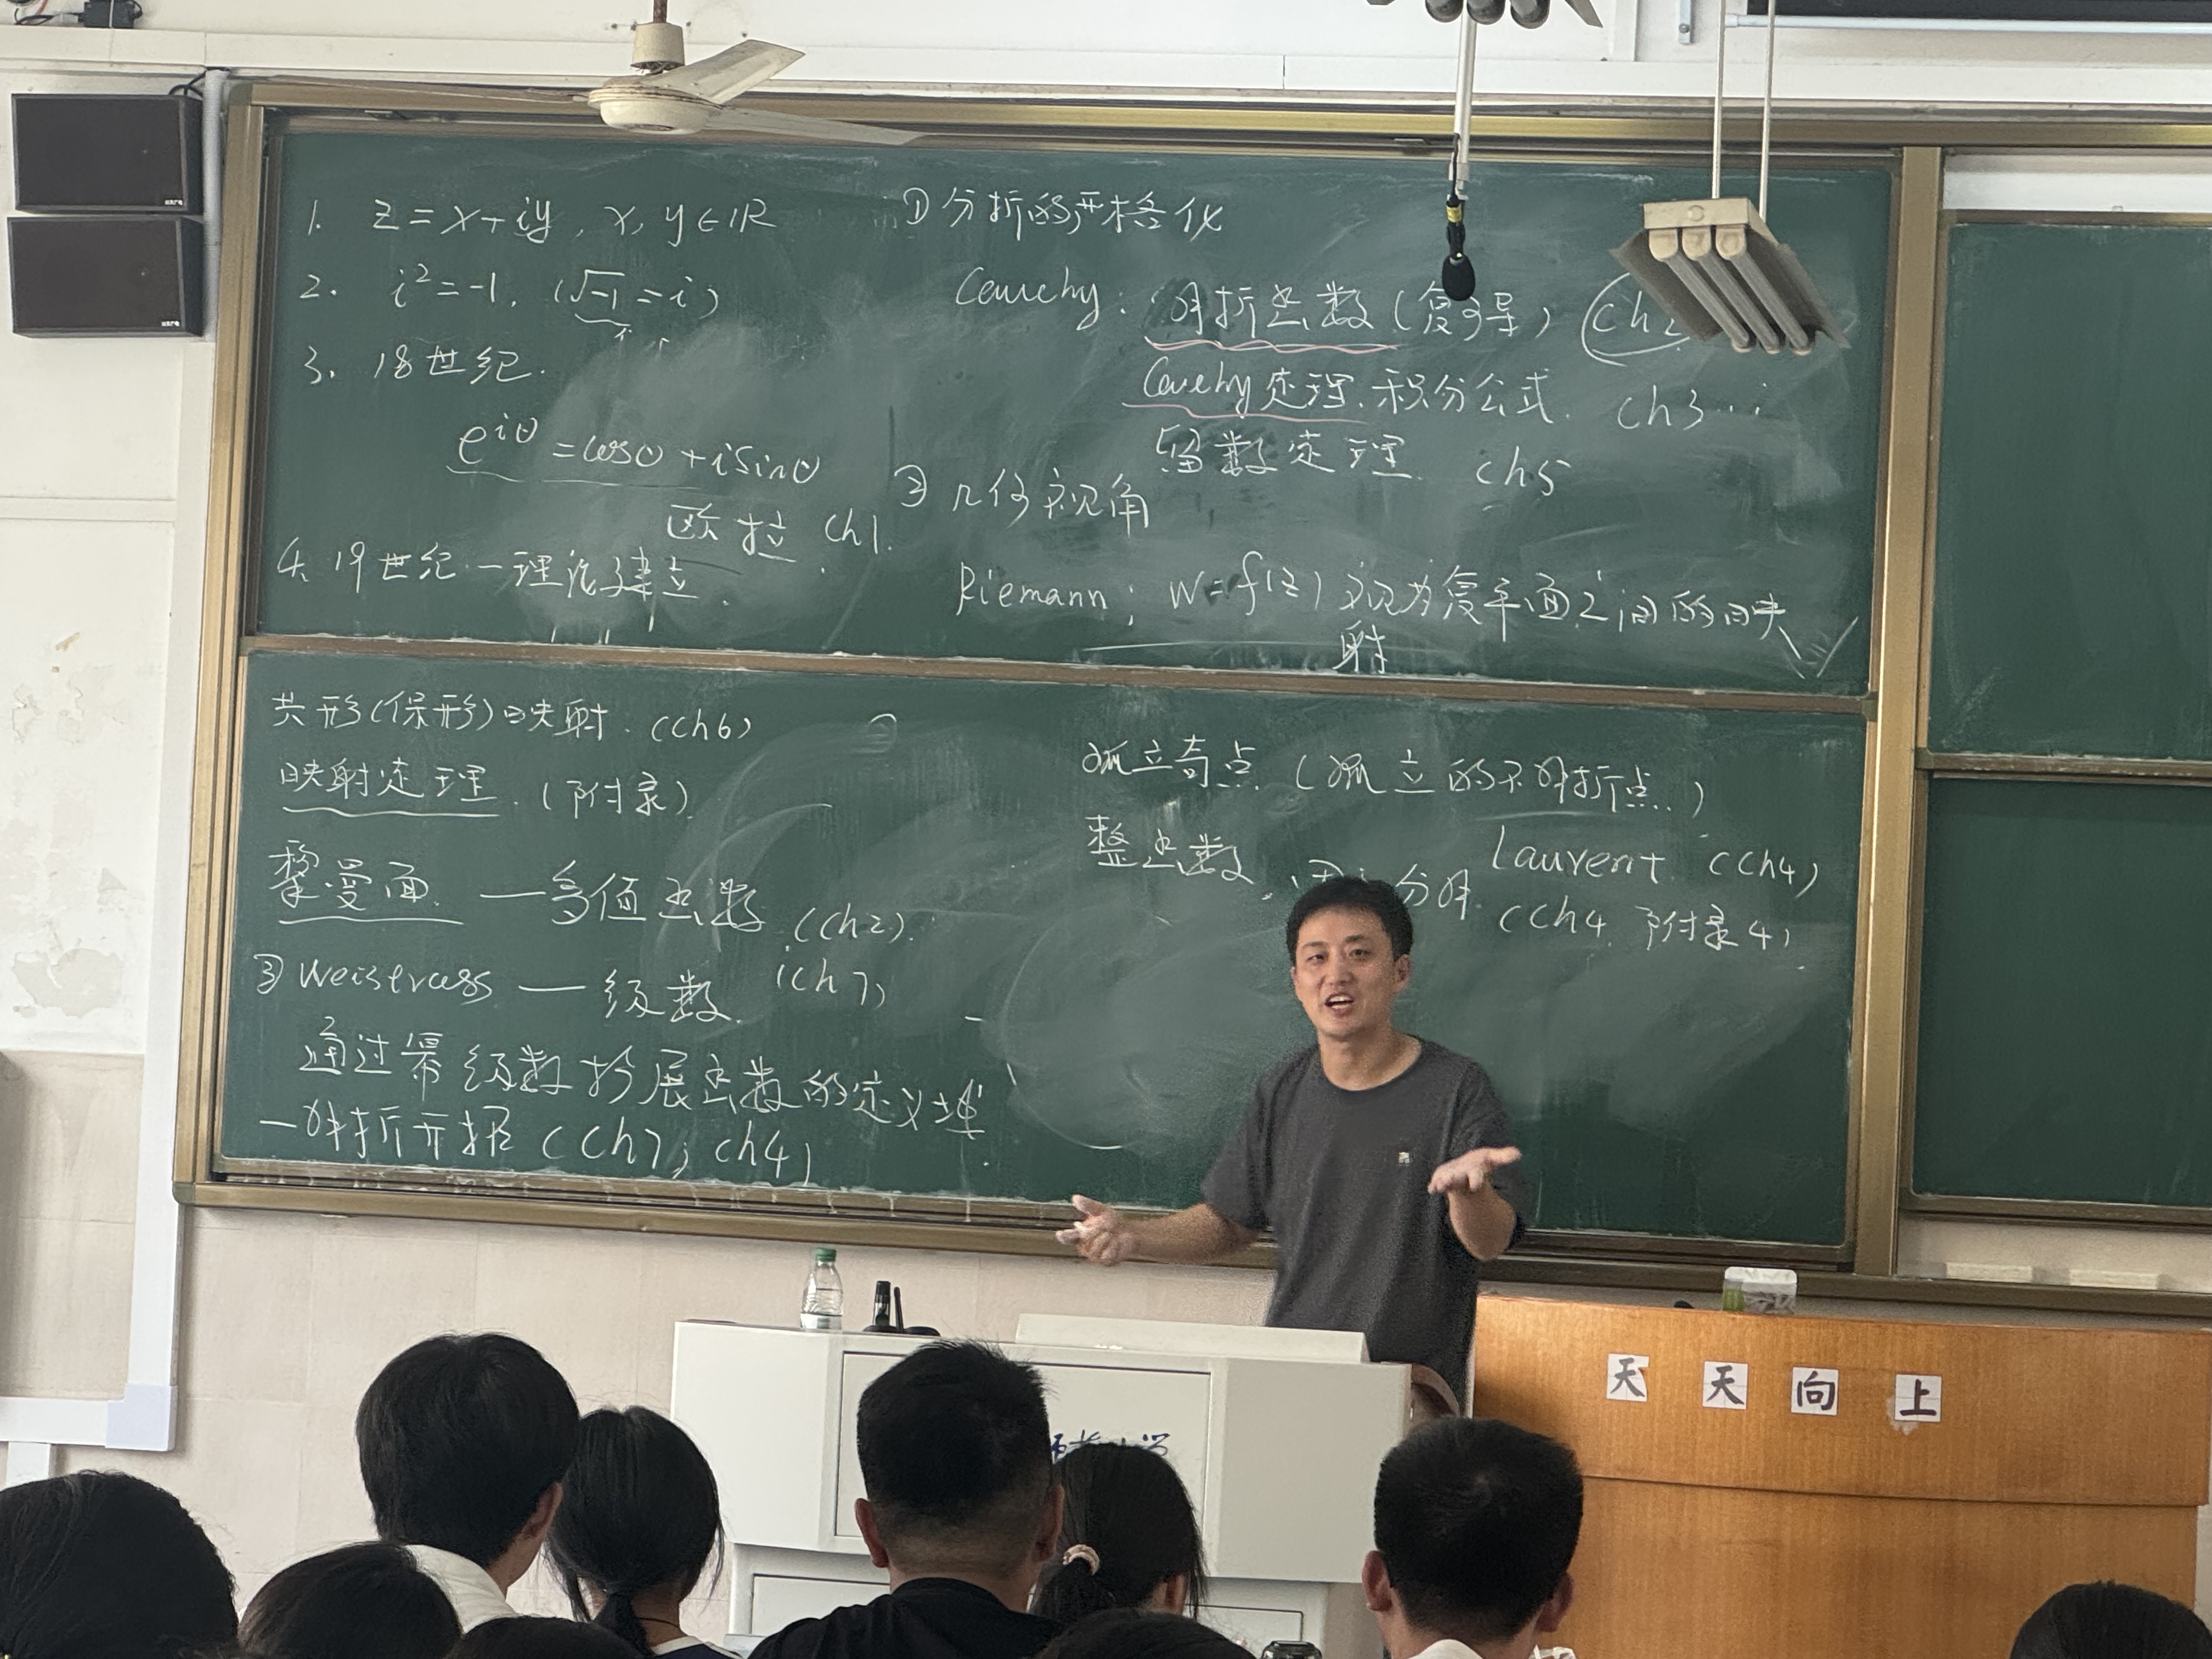 1. z=x+iy, x, y∈ℝ
2. i²=-1. (√-1=i)
3. 18世纪.
e^{iθ}=cosθ+isinθ
欧拉 ch1.
4. 19世纪—理论建立.
①分析的严格化
Cauchy: 解析函数(复可导) ch2
Cauchy定理.积分公式. ch3
留数定理. ch5
②几何视角
Riemann: W=f(z)视为复平面之间的映
射
共形(保形)映射. (ch6)
映射定理. (附录)
黎曼面. —多值函数 (ch2).
(ch7)
③ Weistrass — 级数.
通过幂级数扩展函数的定义域
—解析开拓 (ch7; ch4)
孤立奇点 (孤立的不解析点.)
Laurent (ch4)
整函数,
分解. (ch4 附录4)
天天向上